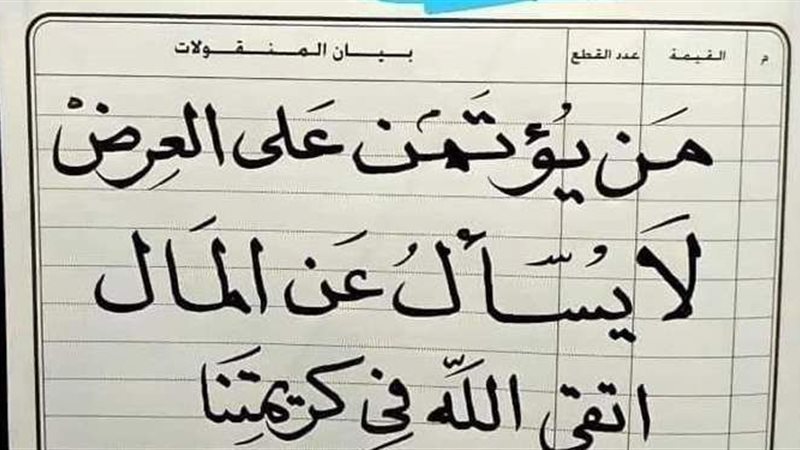 م القيمة عدد القطع بيـان المـنـقـولات
مَن يُؤتَمَن عَلى العِرضْ
لَا يُسّألُ عَن المَال
اتقى اللَّه فِي كريمتِنَا